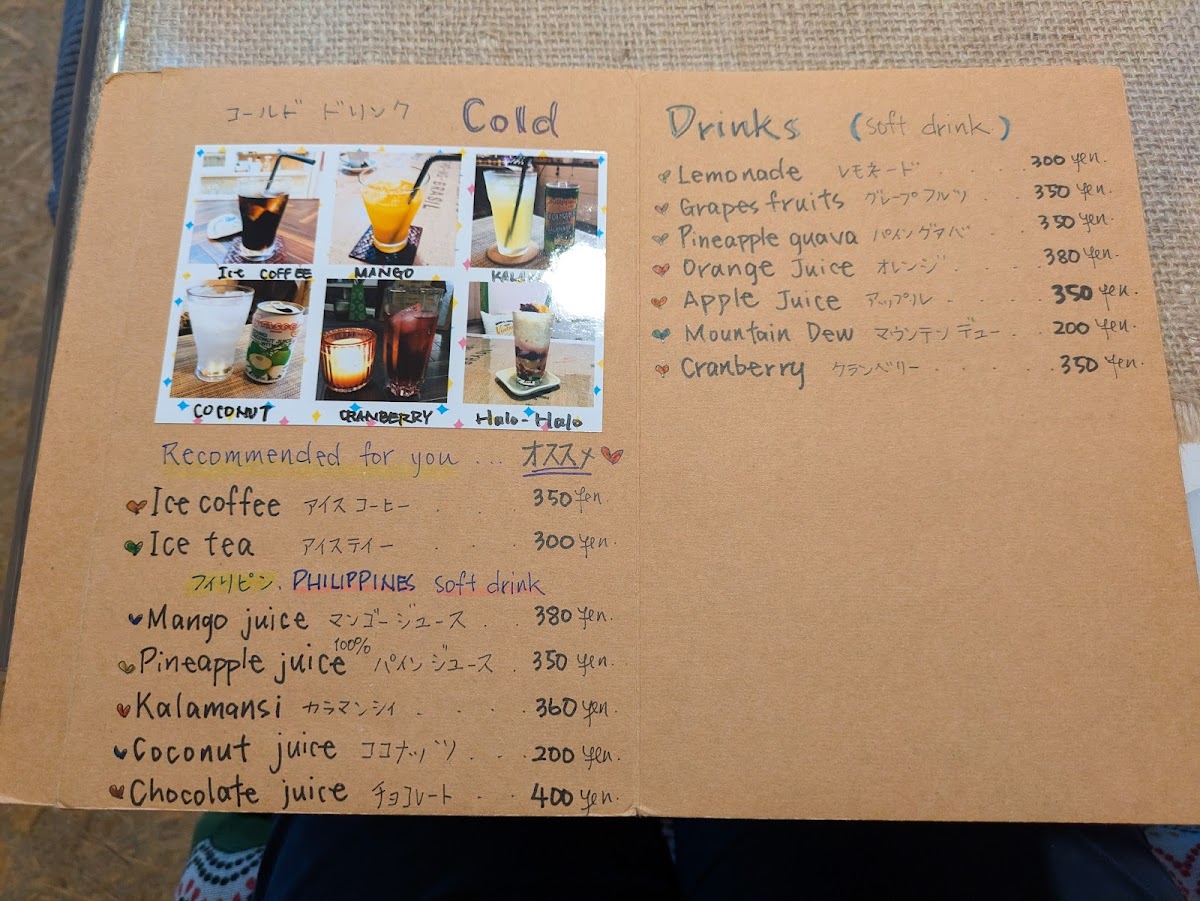 コールド ドリンク Cold
ICE COFFEE MANGO
COCONUT CRANBERRY Halo-Halo
Recommended for you ... オススメ
Ice coffee アイスコーヒー . . . 350 yen.
Ice tea アイスティー . . . 300 yen.
フィリピン. PHILIPPINES soft drink
Mango juice マンゴージュース . . 380 yen.
Pineapple juice 100% パインジュース . 350 yen.
Kalamansi カラマンシイ . . . . 360 yen.
Coconut juice ココナッツ . . . 200 yen.
Chocolate juice チョコレート . . 400 yen.
Drinks (soft drink.)
Lemonade レモネード . . . . 300 yen.
Grapes fruits グレープフルツ . . . 350 yen.
Pineapple guava パイングアバ . . . 350 yen.
Orange Juice オレンジ . . . . 380 yen.
Apple Juice アップル . . . . . 350 yen.
Mountain Dew マウンテンデュー . . 200 yen.
Cranberry クランベリー . . . . . 350 yen.